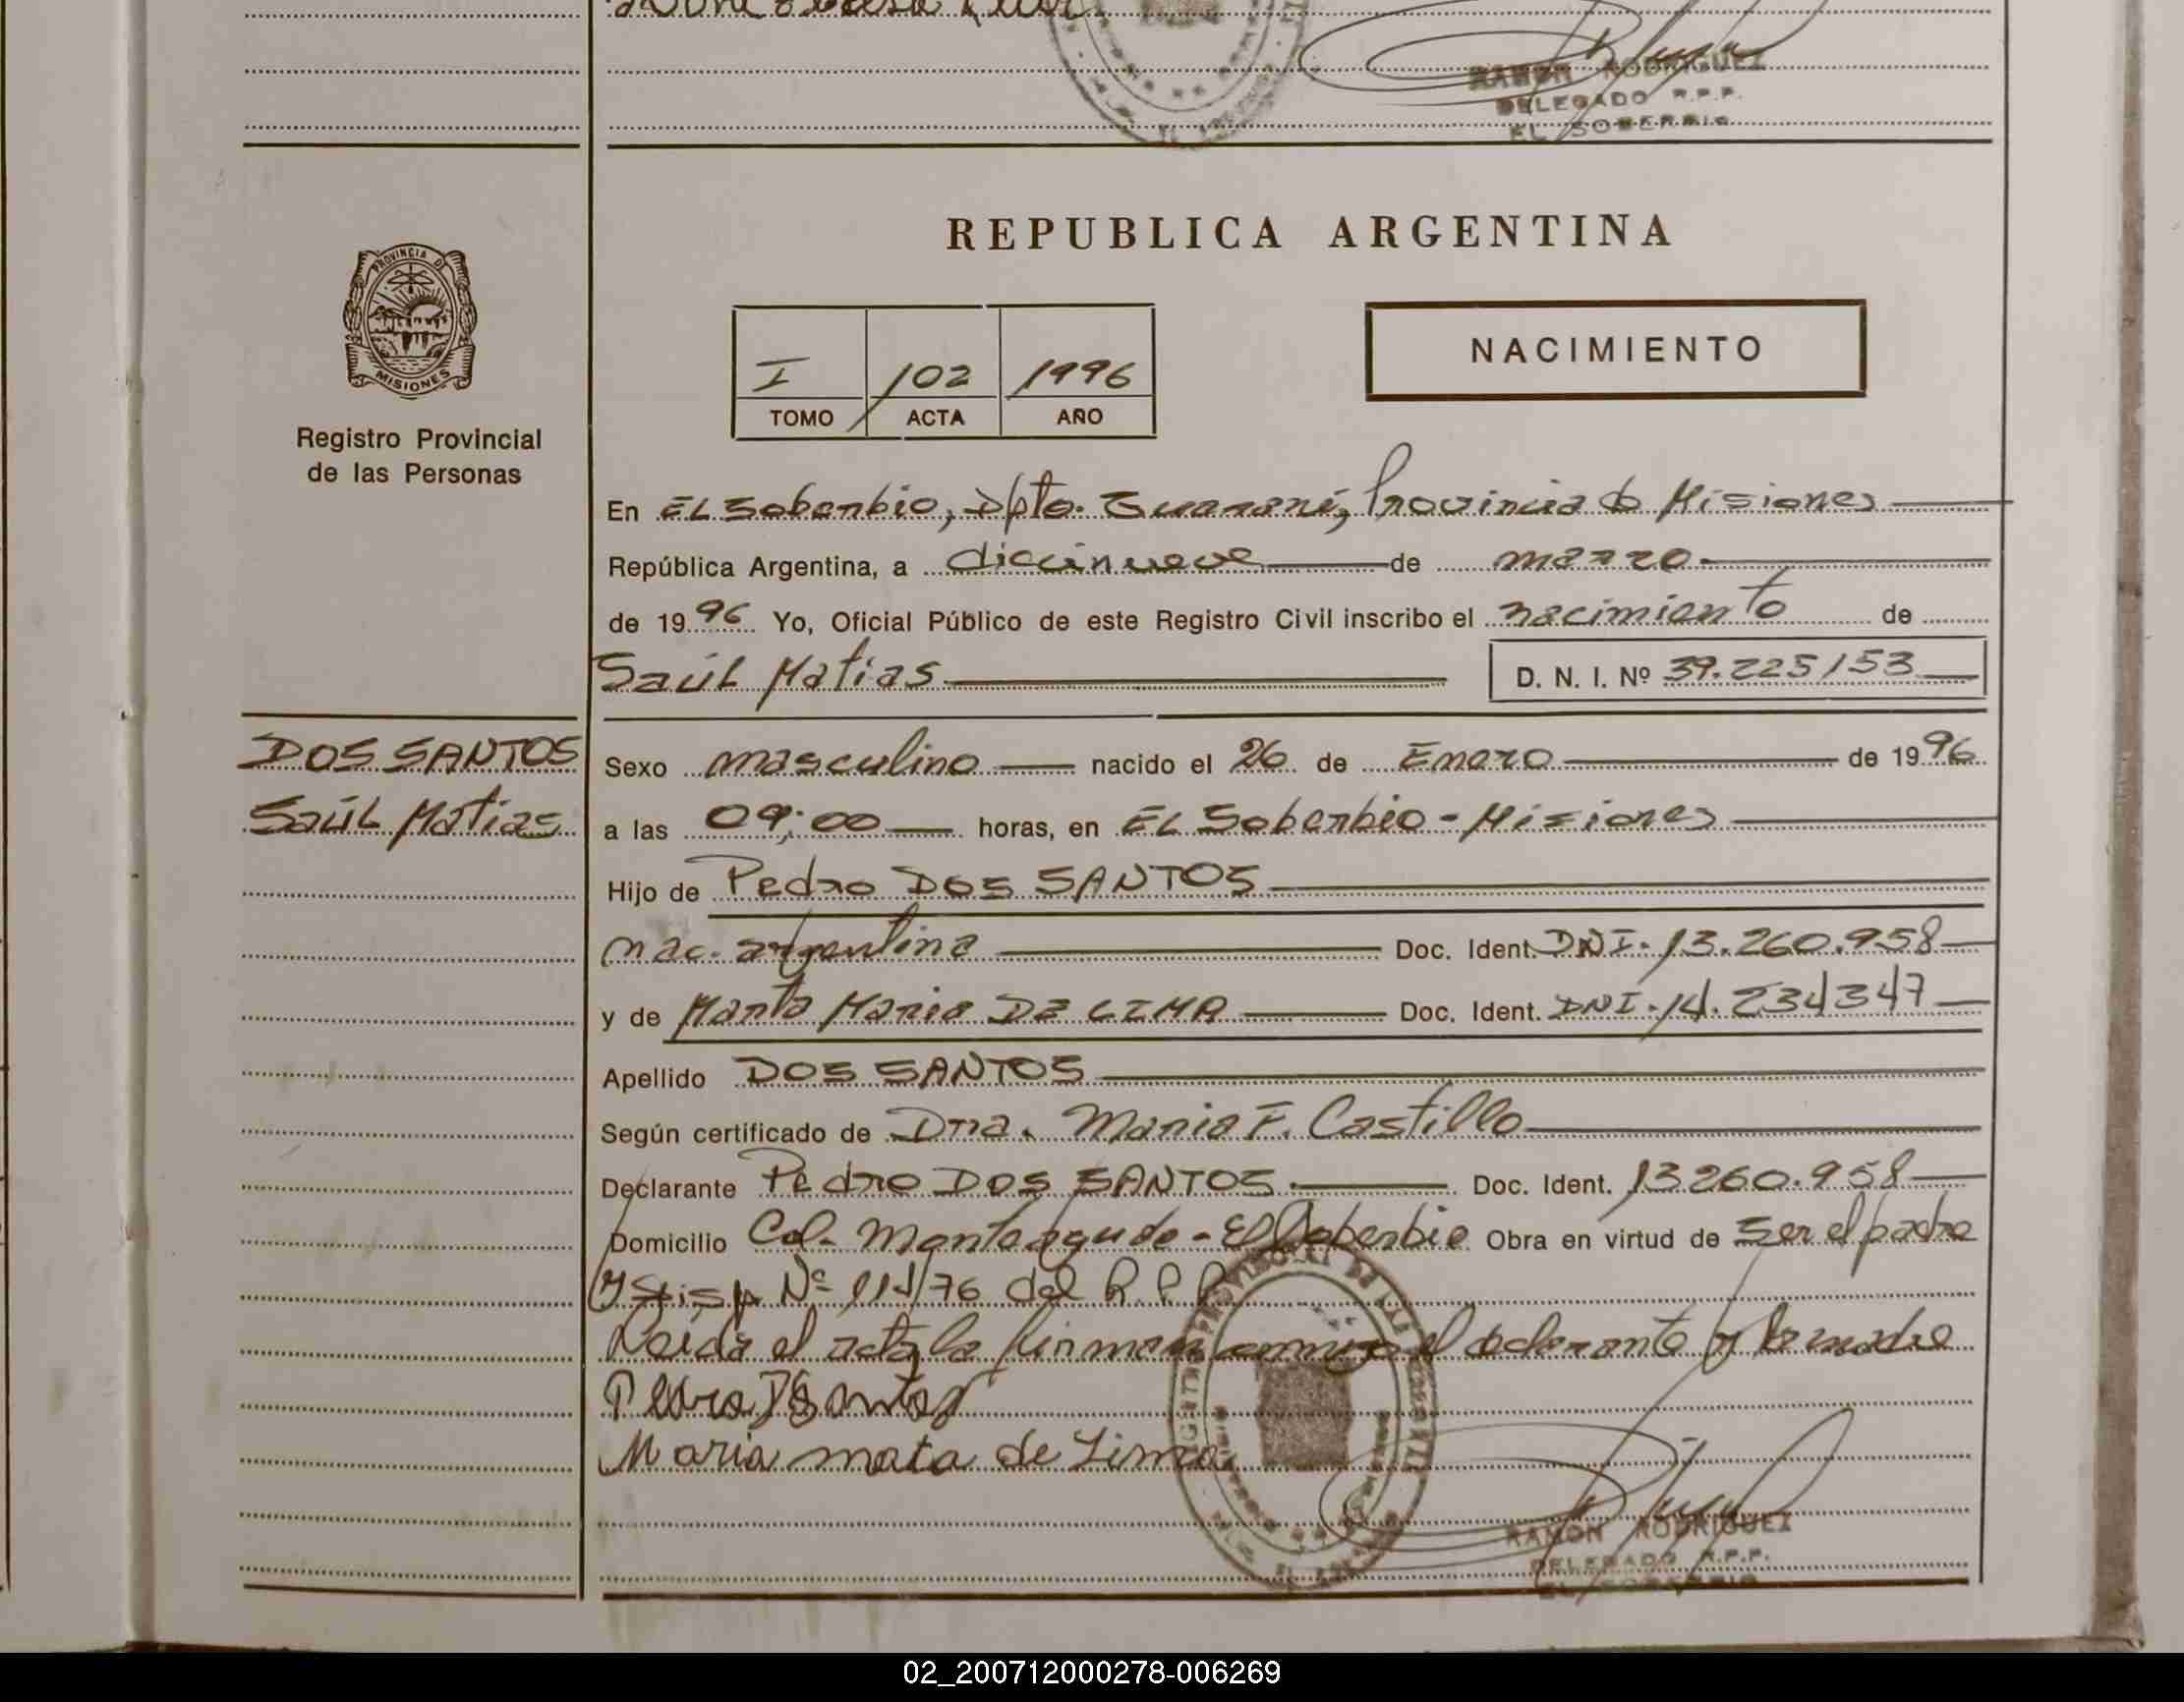 RAMON RODRIGUEZ
DELEGADO R.P.P.
EL SOBERBIO
PROVINCIA DE
MISIONES
Registro Provincial
de las Personas
REPUBLICA ARGENTINA
I 102 1996
TOMO ACTA AÑO
NACIMIENTO
En EL Soberbio, Dpto. Guaraní, Provincia de Misiones
República Argentina, a diecinueve de marzo
de 1996 Yo, Oficial Público de este Registro Civil inscribo el nacimiento de
Saúl Matias D. N. I. Nº 39.225153
DOS SANTOS
Saúl Matias
Sexo masculino nacido el 26 de Enero de 1996
a las 09:00 horas, en EL Soberbio - Misiones
Hijo de Pedro DOS SANTOS
nac. argentina Doc. Ident. DNI. 13.260.958
y de Marta Maria DE LIMA Doc. Ident. DNI. 14.234347
Apellido DOS SANTOS
Según certificado de Dra. Maria F. Castillo
Declarante Pedro DOS SANTOS. Doc. Ident. 13260.958
Domicilio Col. Monteagudo - El Soberbio Obra en virtud de ser el padre
y Disp. Nº 111/76 del R.P.P.
Leida el acta la firman conmigo el declarante y la madre
Pedro DSantos
Maria mata de Lima
RAMON RODRIGUEZ
DELEGADO R.P.P.
EL SOBERBIO
02_200712000278-006269